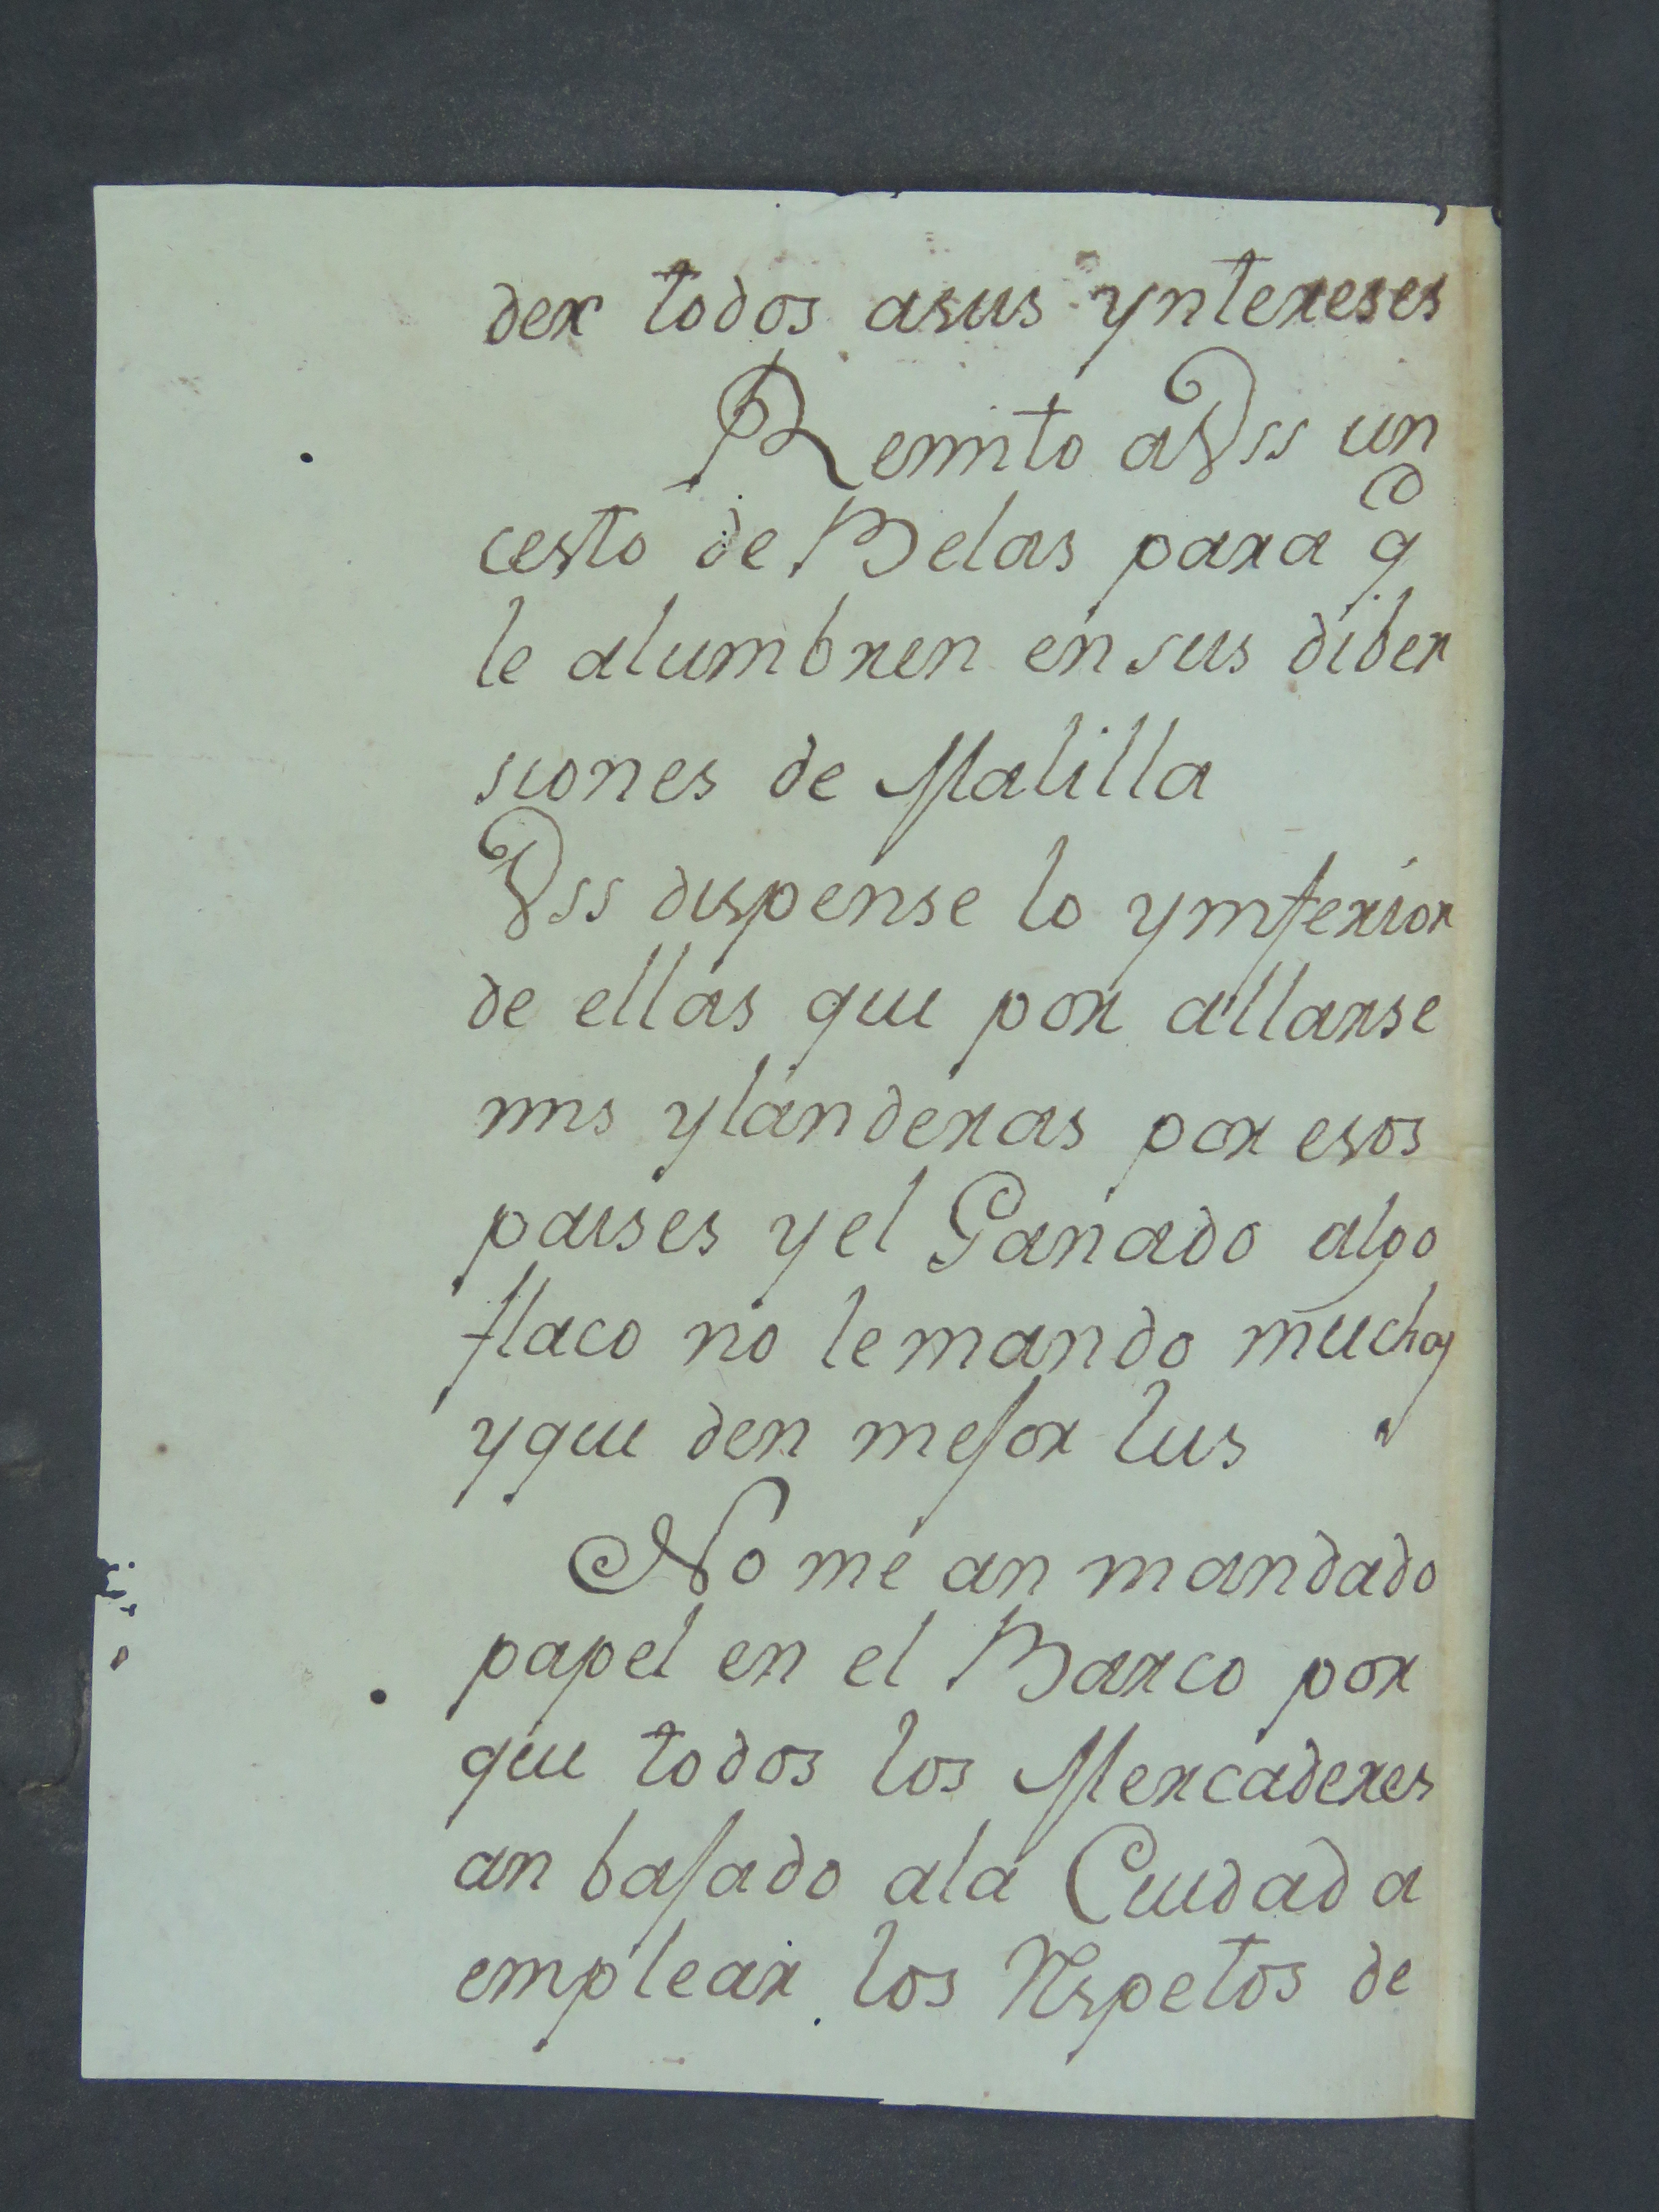 der todos asus yntereses
Remito aVss un
cesto de Belas para q̃
le alumbren en sus diber
siones de Malilla
Vss dispense lo ymferior
de ellas que por allarse
mis ylanderas por esos
paises y el Ganado algo
flaco no le mando muchas
y que den mejor lus
No me an mandado
papel en el Barco por
que todos los Mercaderes
an bajado ala Ciudad a
emplear los Rspetos de